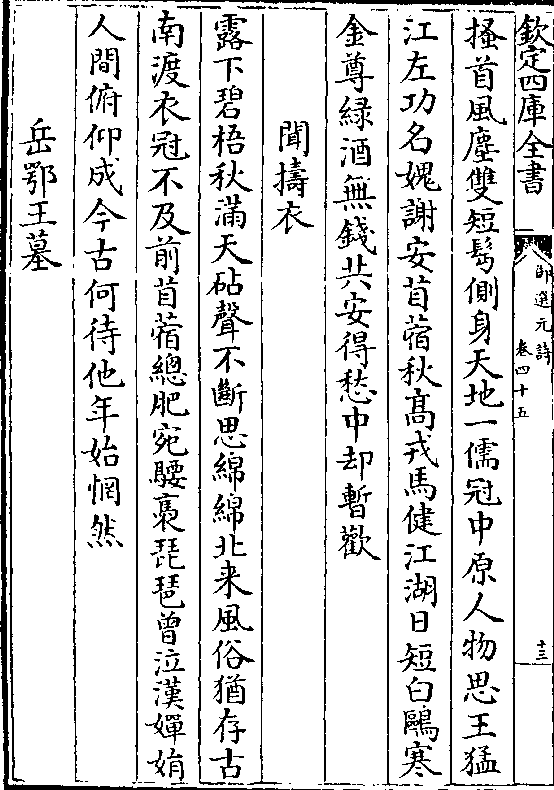 欽定四庫全書
御選元詩
卷四十五
十三
搔首風塵雙短髩側身天地一儒冠中原人物思王猛
江左功名媿謝安苜蓿秋髙戎馬健江湖日短白鷗寒
金尊緑酒無錢共安得愁中却暫歡
聞擣衣
露下碧梧秋滿天砧聲不斷思綿綿北来風俗猶存古
南渡衣冠不及前苜蓿總肥宛騕褭琵琶曾泣漢嬋娟
人間俯仰成今古何待他年始惘然
岳鄂王墓